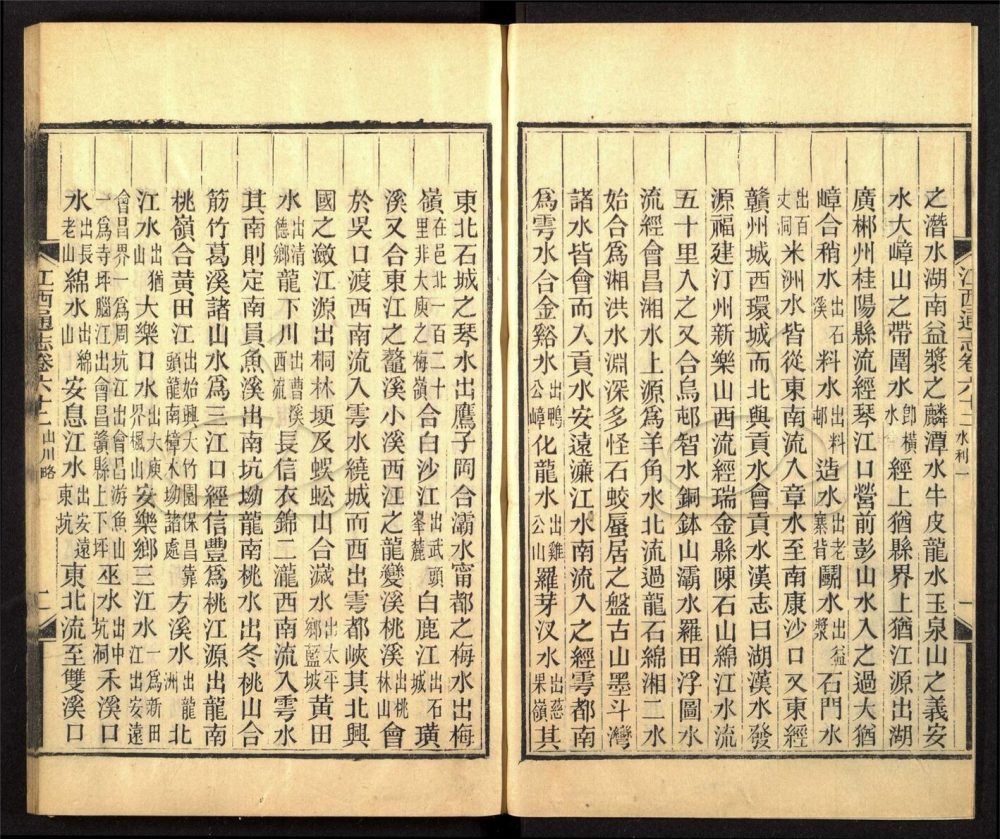 之潛水湖南益漿之麟潭水牛皮龍水玉泉山之義安
水大嶂山之帶圍水卽橫水經上猶縣界上猶江源出湖
廣郴州桂陽縣流經琴江口營前彭山水入之過大猶
嶂合稍水出石溪料水出料邨造水出老寨背鬭水出益漿石門水
出百丈洞米洲水皆從東南流入章水至南康沙口又東經
贛州城西環城而北與貢水會貢水漢志曰湖漢水發
源福建汀州新樂山西流經瑞金縣陳石山綿江水流
五十里入之又合烏邨智水銅鉢山灞水羅田浮圖水
流經會昌湘水上源爲羊角水北流過龍石綿湘二水
始合爲湘洪水淵深多怪石蛟蜃居之盤古山墨斗灣
諸水皆會而入貢水安遠濂江水南流入之經雩都南
爲雩水合金谿水出鴨公嶂化龍水出雞公山羅芽汊水出慈果嶺其
江西通志卷六十二 水利一
一
東北石城之琴水出鷹子岡合灞水甯都之梅水出梅
嶺在邑北一百二十里非大庾之梅嶺合白沙江出武頭峯麓白鹿江出石城璜
溪又合東江之蘆溪小溪西江之龍變溪桃溪出桃林山會
於吳口渡西南流入雩水繞城而西出雩都峽其北興
國之潋江源出桐林埂及蜈蚣山合滅水出太平鄉藍坡黃田
水出清德鄉龍下川出曹溪西流長信衣錦二瀧西南流入雩水
其南則定南員魚溪出南坑坳龍南桃水出冬桃山合
筋竹葛溪諸山水爲三江口經信豐爲桃江源出龍南
桃嶺合黃田江出始興大竹園保昌靠頭龍南樟木坳諸處方溪水出龍洲北
江水出猶山大樂口水出大庾界楓山安樂鄉三江水一爲新田江出安遠
會昌界一爲周坑江出會昌游魚山一爲寺坪腦江出會昌贛縣上下坪巫水出中坑洞禾溪口
水出長老山綿水出綿山安息江水出安遠東坑東北流至雙溪口
江西通志卷六十二 山川略
二